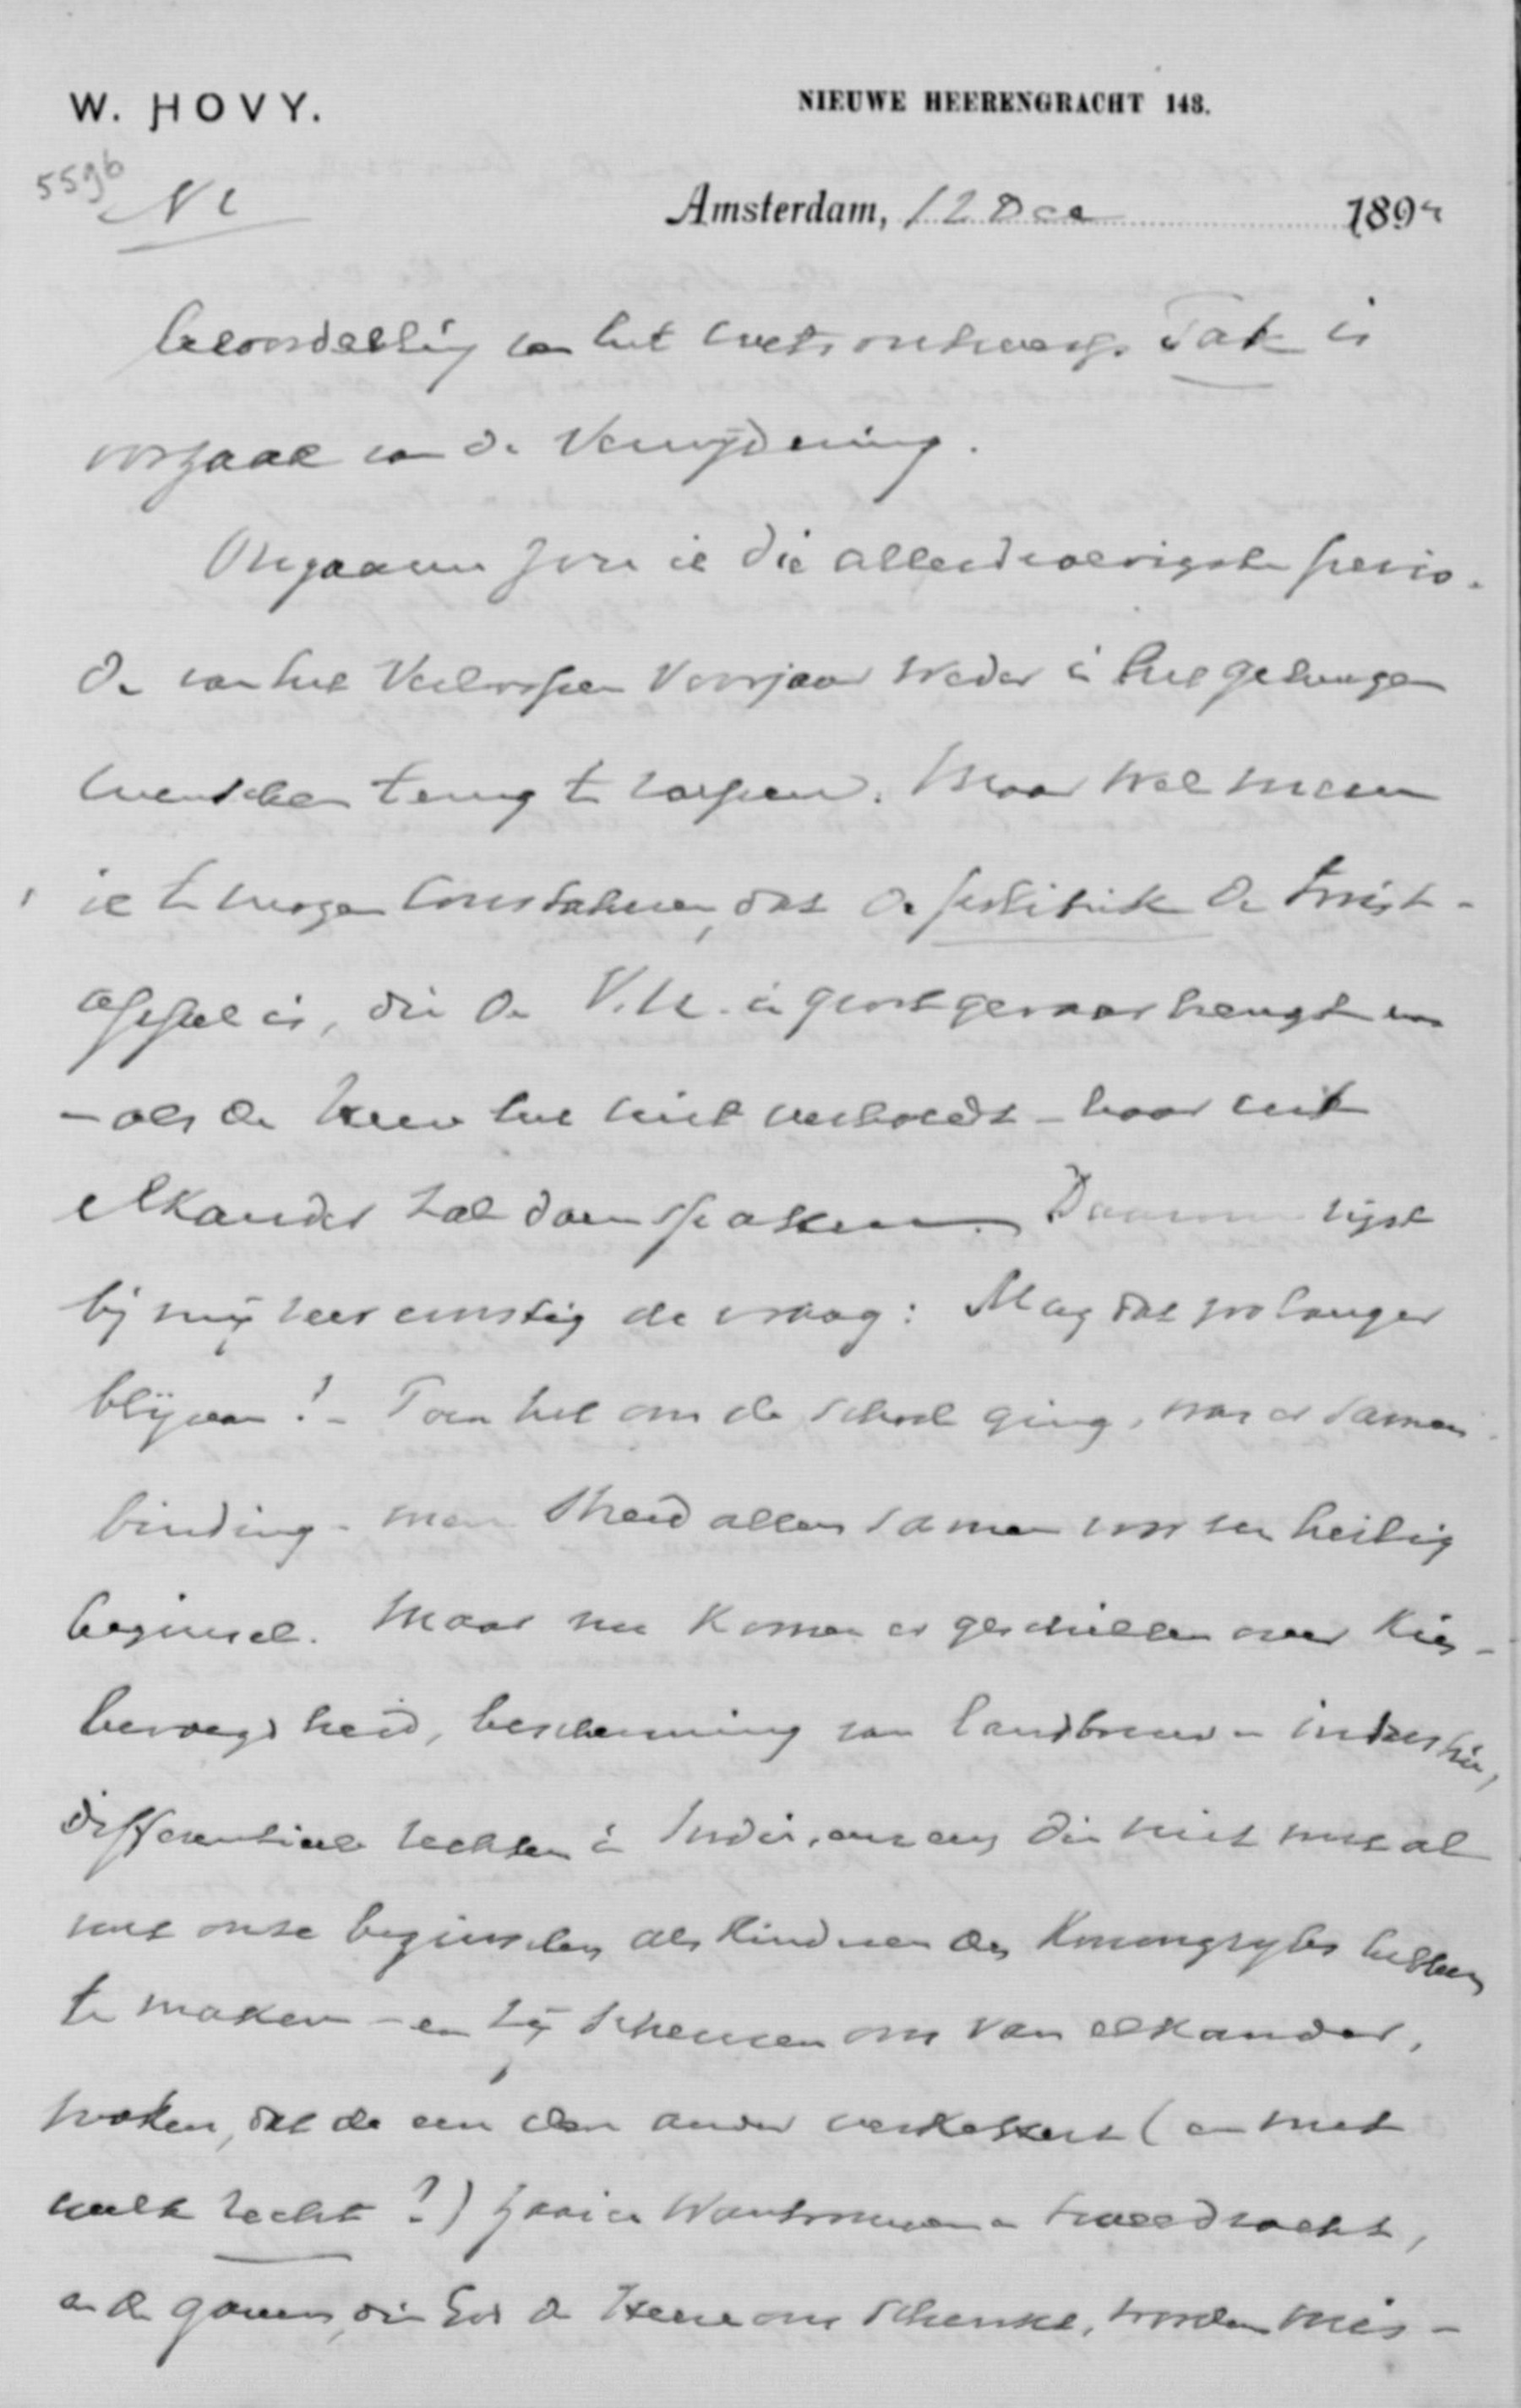 W. HOVY.
NIEUWE HEERENGRACHT 148.
5596
Amsterdam, 12 Dec 1894
beoordeeling van het wetsontwerp Tak is
oorzaak van de verwijdering.
Ongaarne zou ik die allerdroevigste perio-
de van het verloopen voorjaar weder in het geheugen
wenschen terug te roepen. Maar wel meen
ik te mogen constateren, dat de politiek de twist-
appel is, die de V.U. in groot gevaar brengt en
- als de Heer het niet verhoedt - haar uit
elkander zal doen spatten. Daarom rijst
bij mij zeer ernstig de vraag: Mag dat zoo langer
blijven? - Toen het om de school ging, was er samen-
binding - men streed allen samen voor een heilig
beginsel. Maar nu komen er geschillen over kies-
bevoegdheid, bescherming van landbouw en industrie,
differentieele rechten in Indië, enz enz die niet met al
met onze beginselen als kinderen des Koningrijks hebben
te maken - en zij scheuren ons van elkander,
maken, dat de een den ander verkettert (en met
welk recht?) zaaien wantrouwen en tweedracht,
en de gaven, die God de Heere ons schenkt, worden mis-